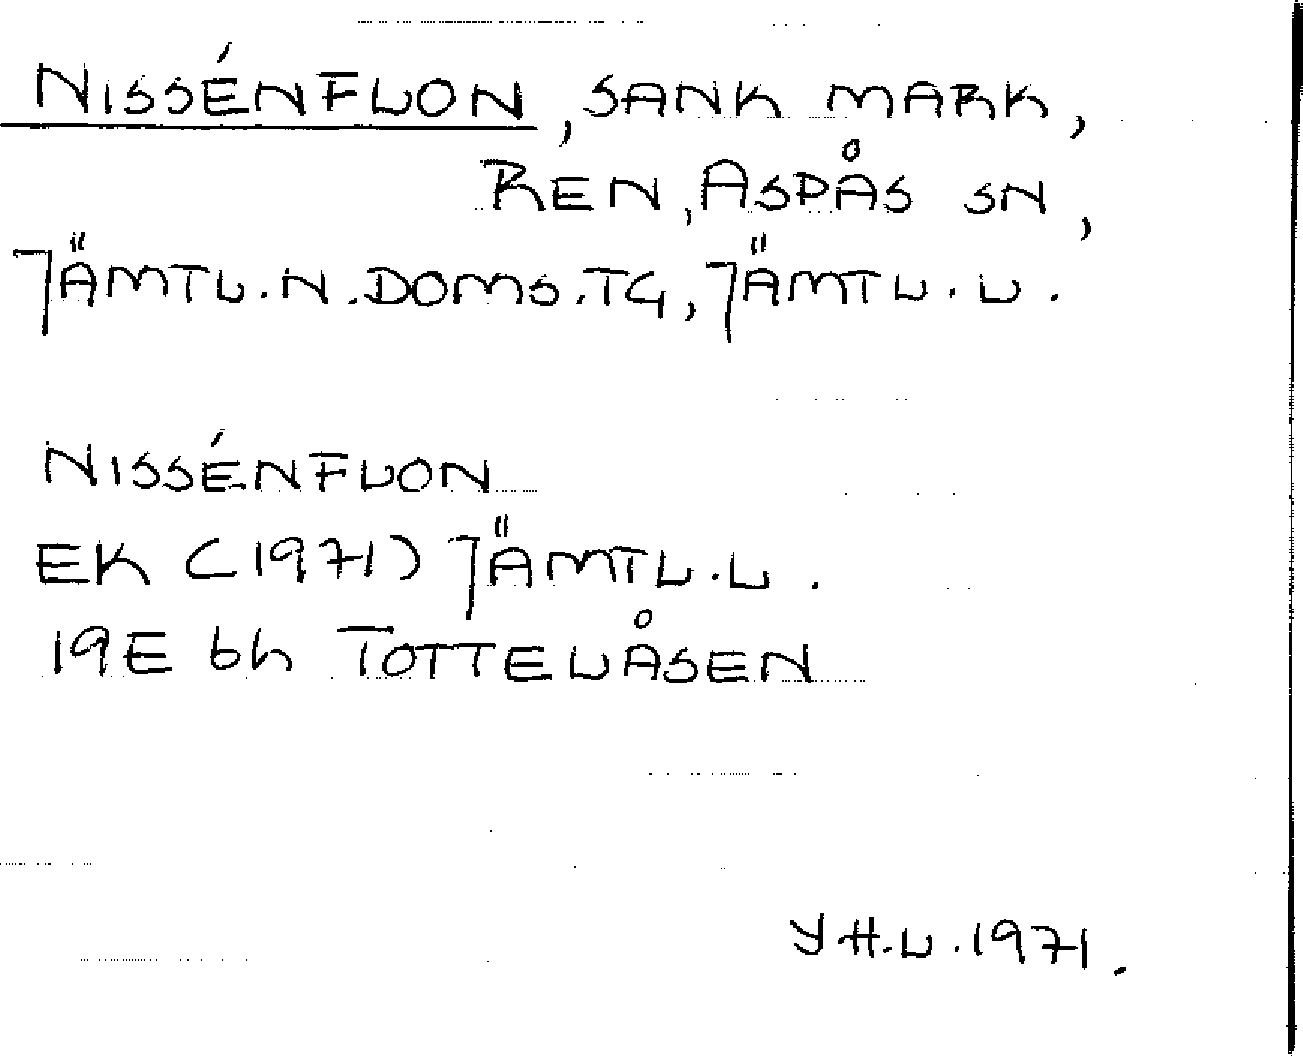 NISSÉNFLON, SANK MARK,
REN, ASPÅS SN,
JÄMTL.N.DOMS.TG, JÄMTL.L.
NISSÉNFLON
EK (1971) JÄMTL.L.
19E 6h TOTTELÅSEN
Y H.L.1971.